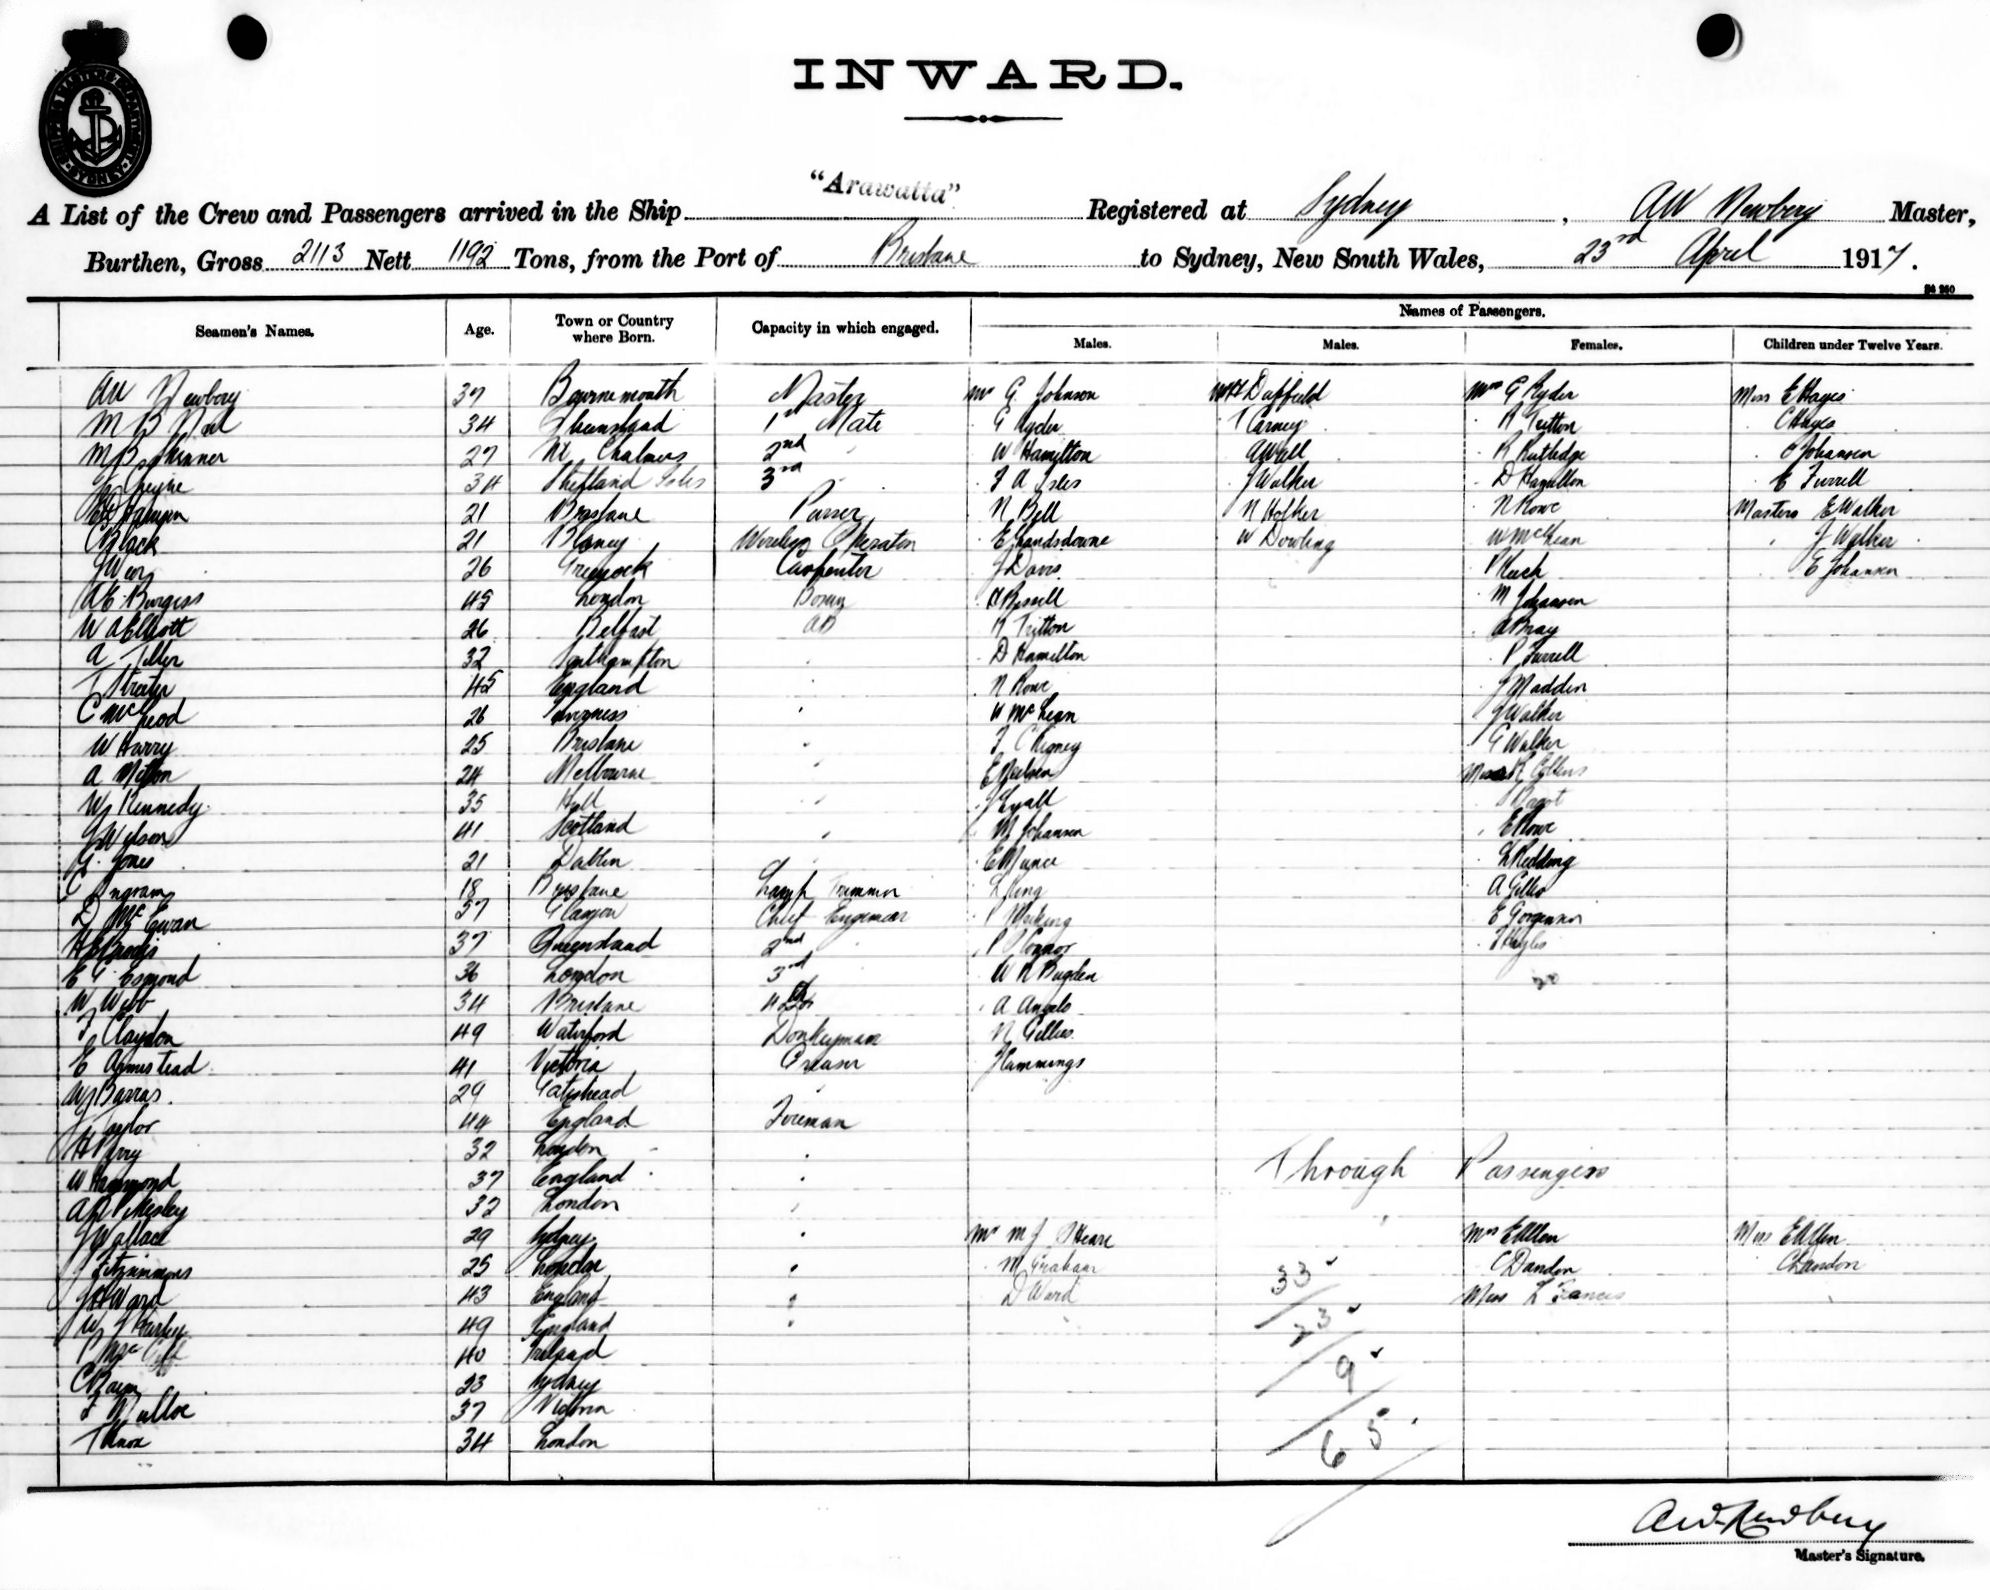 INWARD.
SYDNEY
"Arawatta"
A List of the Crew and Passengers arrived in the Ship Registered at Sydney, AW Newbery Master,
Burthen, Gross 2113 Nett 1192 Tons, from the Port of Brisbane to Sydney, New South Wales, 23rd April 1917.
Names of Passengers.
Seamen's Names. Age. Town or Country where Born. Capacity in which engaged. Males. Males. Females. Children under Twelve Years.
AW Newbery 37 Bournemouth Master Mr G. Johnson H Duffield Mrs G Ryder Miss E Hayes
M B 34 Queensland 1st Mate G Ryder T Carney R Tritton C Hayes
M B Skinner 27 Pt Chalmers 2nd W Hamilton R Rutledge Johansen
34 Shetland Isles 3rd F A Isles J Walker D Hamilton E Furrell
21 Brisbane Purser N Bell N Holker N Rowe Masters E Walker
C Black 21 Blaney Wireless Operator E Landsdowne W Dowling J Walker
J Weir 26 Greenock Carpenter J Davis E Johansen
A E Burgess 45 London Bosun M Johansen
W A Elliott 26 Belfast AB R Tritton Bray
A 32 Southampton D Hamilton P Furrell
T 45 England N Rowe J Madden
C McLeod 26 Inverness McLean J Walker
W Harry 25 Brisbane F C Rigney G Walker
A 24 Melbourne E Neilsen Miss R Collins
W J Kennedy 35 Hull J Lyall
J Wilson 41 Scotland M Johansen E Rowe
G. Jones 21 Dublin E Munce L Redding
C Ingram 18 Brisbane Lamp Trimmer L King A Gillies
D McEwan 57 Glasgow Chief Engineer P
37 Queensland 2nd P Connor
E G Esmond 36 London 3rd W R Bugden 20
W Webb 34 Brisbane 4th A Angelo
F Claydon 49 Waterford Donkeyman N Gillies
E Armistead 41 Victoria Greaser J Cummings
W J Barras. 29 Gateshead
J Taylor 44 England Fireman
H Parry 32 London Through Passengers
W Hammond 37 England
A 32 London
J Wallace 29 Sydney Mr M J Mrs E Allen Miss E Allen
J Fitzsimmons 25 London M Graham 33 C Dandon
J H Ward 43 England D Ward Miss L Francis
W J 49 England 23
P 40 Ireland 9
C 23 Sydney
F 37 Victoria 65
T Knox 34 London
AW Newbery
Master's Signature.